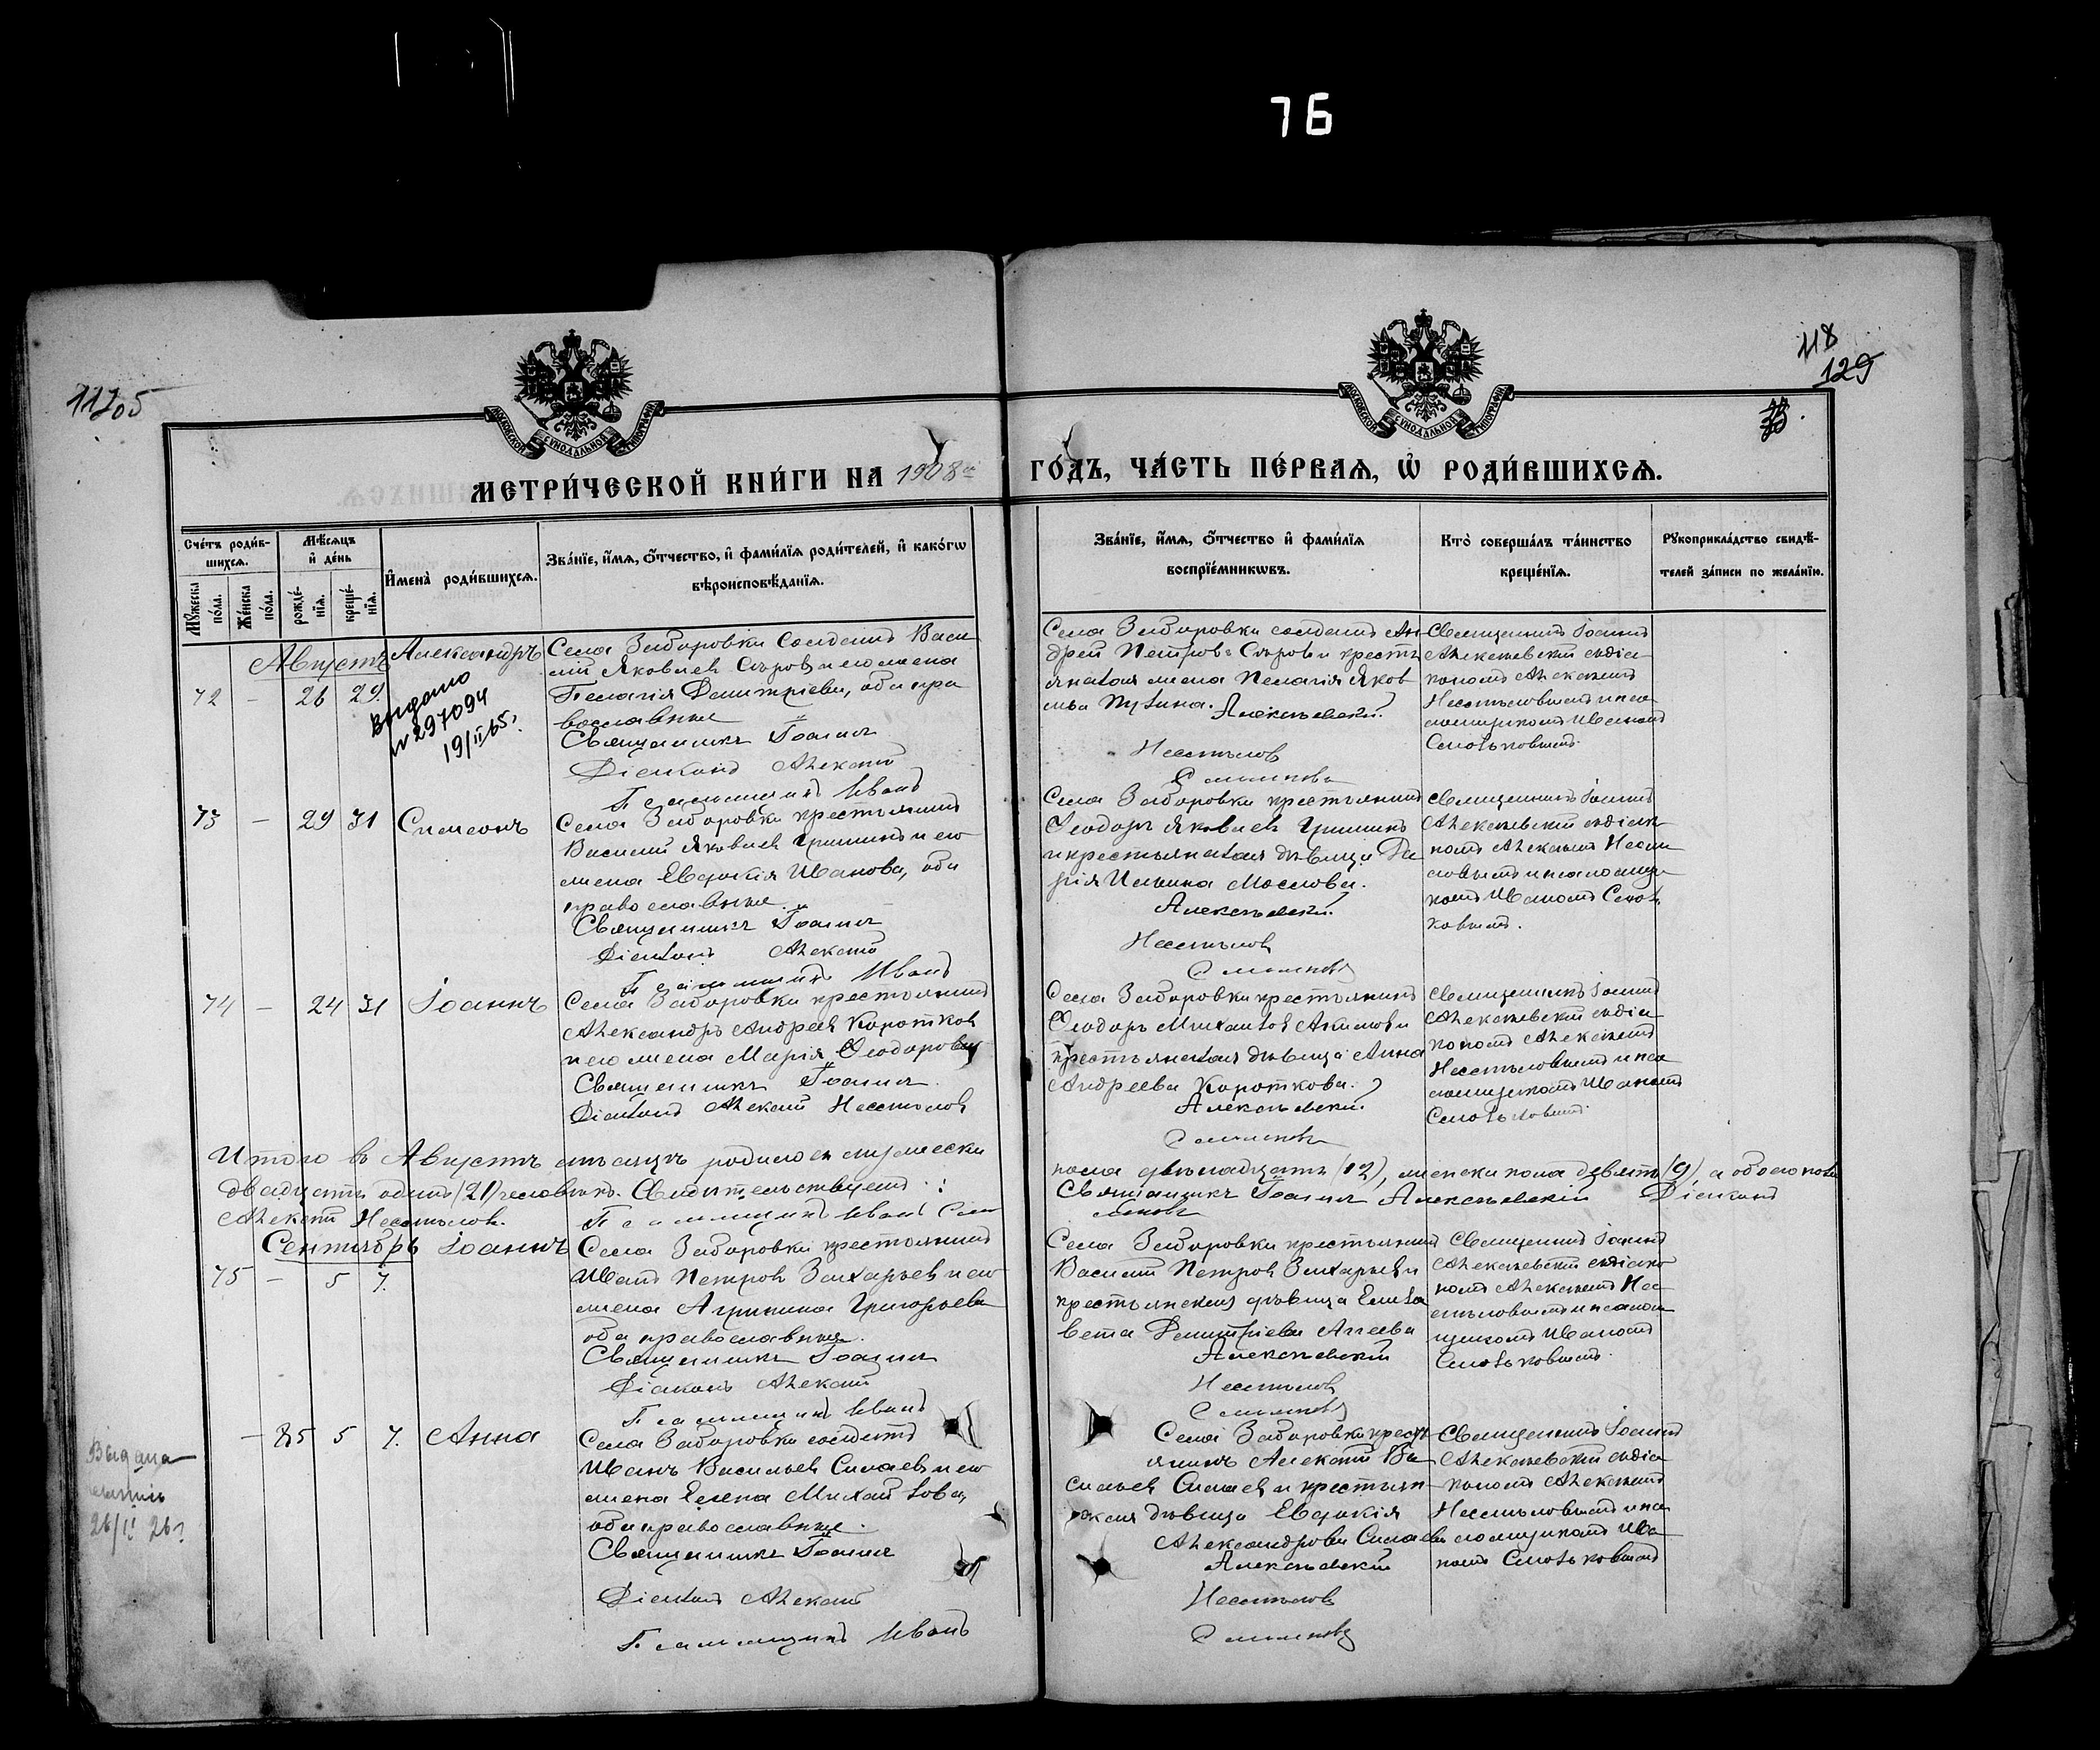 76
118
129
11205
МЕТРИ́ЧЕСКОЙ КНИ́ГИ НА 1908 ГО́ДЪ, ЧА́СТЬ ПЕ́РВАѦ, Ѡ҆ РОДИ́ВШИХСѦ.
МОСКОВСКОЙ СѴНОДАЛЬНОЙ ТИПОГРАФІИ
МОСКОВСКОЙ СѴНОДАЛЬНОЙ ТИПОГРАФІИ
Сче́тъ роди́в-
шихсѧ.
Мѣ́сѧцъ
и҆ де́нь
И҆мена̀ роди́вшихсѧ.
Зва́нїе, и҆́мѧ, ѻ҆́тчество, и҆ фами́лїѧ роди́телей, и҆ како́гѡ
вѣроисповѣ́данїѧ.
Мꙋ́жеска
по́ла.
Же́нска
по́ла.
рожде́-
нїѧ.
креще́-
нїѧ.
Зва́нїе, и҆́мѧ, ѻ҆́тчество и҆ фами́лїѧ
воспрїе́мникѡвъ.
Кто̀ соверша́лъ та́инство
креще́нїѧ.
Рꙋкоприкла́дство свидѣ́-
телей за́писи по жела́нїю.
Августъ
72 - 26 29. Александръ
Выдано
№ 297094
19/II 65.
Села Заборовки солдатъ Васи
лій Яковлев Съров и его жена
Пелагія Димитріева, оба пра
вославные
Священникъ Іоаннъ
Діаконъ Алексій
Псаломщикъ Иванъ
Села Заборовки солдатъ Ан
дрей Петров Съров и кресть
янская жена Пелагія Яков
лева
Алексѣевскій
Несмѣлов
Священникъ Іоаннъ
Алексѣевскій съ діа
кономъ Алексіемъ
Несмѣловымъ и пса
ломщикомъ Иваномъ
73 - 29 31 Симеонъ
Села Заборовки крестьянинъ
Василій Яковлев Гришинъ и его
жена Евдокія Иванова, оба
православные.
Священникъ Іоаннъ
Діаконъ Алексій
Псаломщикъ Иванъ
Села Заборовки крестьянинъ
Ѳеодоръ Яковлев Гришинъ
и крестьянская дѣвица Да
рія Ильина Маслова.
Алексѣевскій
Несмѣлов
Священникъ Іоаннъ
Алексѣевскій съ діак
номъ Алексіемъ Несмѣ
ловымъ и псаломщи
комъ Иваномъ
ковымъ.
74 - 24 31 Іоаннъ
Села Заборовки крестьянинъ
Александръ Андреев Коротков
и его жена Марія Ѳеодорова
Священникъ Іоаннъ
Діаконъ Алексій Несмѣлов
Села Заборовки крестьянинъ
Ѳеодоръ Михайлов Акимов и
крестьянская дѣвица Анна
Андреева Короткова.
Алексѣевскій
Священникъ Іоаннъ
Алексѣевскій съ діа
кономъ Алексіемъ
Несмѣловымъ и пса
ломщикомъ Иваномъ
Итого въ Августѣ мѣсяцѣ родилось мужеска пола двѣнадцать (12), женска пола девять (9), а обоего пола
двадцать одинъ (21) человѣкъ. Свидѣтельствуемъ: Священникъ Іоаннъ Алексѣевскій Діаконъ
Алексій Несмѣлов. Псаломщикъ Иванъ
Сентябрь
75 - 5 7. Іоаннъ
Села Заборовки крестьянинъ
Иванъ Петров Захарьев и его
жена Агрипина Григорьева
оба православные.
Священникъ Іоаннъ
Діаконъ Алексій
Псаломщикъ Иванъ
Села Заборовки крестьянинъ
Василій Петров Захарьев и
крестьянская дѣвица Елиза
вета Димитріева Агеева
Алексѣевскій
Несмѣлов
Священникъ Іоаннъ
Алексѣевскій съ діако
номъ Алексіемъ Нес
мѣловымъ и псалом
щикомъ Иваномъ
- 85 5 7. Анна
Выдана
26/II 26 г
Села Заборовки солдатъ
Иванъ Васильев Силаев и его
жена Елена Михайлова,
оба православные.
Священникъ Іоаннъ
Діаконъ Алексій
Псаломщикъ Иванъ
Села Заборовки крест
янинъ Алексій Ва
сильев Силаев и крестьян
ская дѣвица Евдокія
Александрова Силаева
Алексѣевскій
Несмѣлов
Священникъ Іоаннъ
Алексѣевскій съ діа
кономъ Алексіемъ
Несмѣловымъ и пса
ломщикомъ Ива
номъ